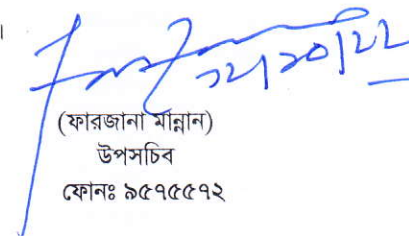 ।
১২/১০/২২
(ফারজানা মান্নান)
উপসচিব
ফোনঃ ৯৫৭৫৫৭২